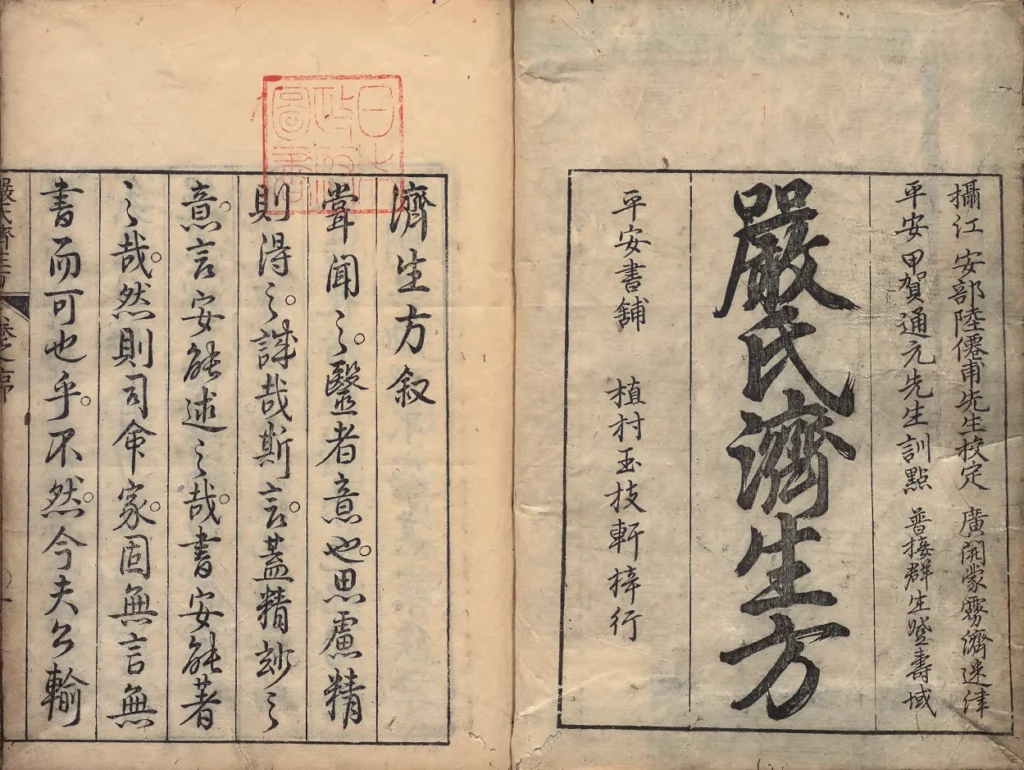 攝江 安部隆僊甫先生校定 廣開蒙霧濟迷津
平安 甲賀通元先生訓點 普接群生登壽域
嚴氏濟生方
平安書舖 植村玉枝軒梓行
日本政府圖書
濟生方叙
甞聞之。醫者意也。思慮精
則得之。誠哉斯言。蓋精玅之
意。言安能述之哉。書安能著
之哉。然則司命家。固無言無
書而可也乎。不然。今夫公輸
嚴氏濟生方 卷之序